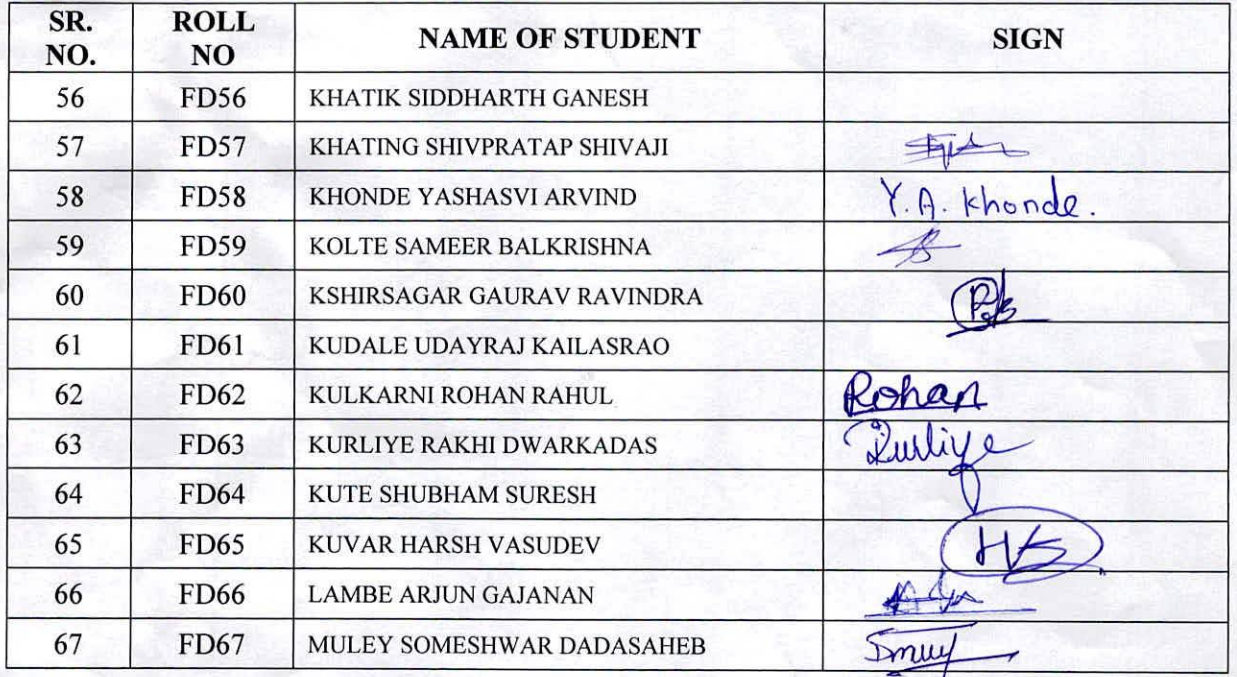 SR. NO. ROLL NO NAME OF STUDENT SIGN
56 FD56 KHATIK SIDDHARTH GANESH
57 FD57 KHATING SHIVPRATAP SHIVAJI
58 FD58 KHONDE YASHASVI ARVIND Y. A. Khonde.
59 FD59 KOLTE SAMEER BALKRISHNA
60 FD60 KSHIRSAGAR GAURAV RAVINDRA
61 FD61 KUDALE UDAYRAJ KAILASRAO
62 FD62 KULKARNI ROHAN RAHUL Rohan
63 FD63 KURLIYE RAKHI DWARKADAS Kurliye
64 FD64 KUTE SHUBHAM SURESH
65 FD65 KUVAR HARSH VASUDEV
66 FD66 LAMBE ARJUN GAJANAN
67 FD67 MULEY SOMESHWAR DADASAHEB